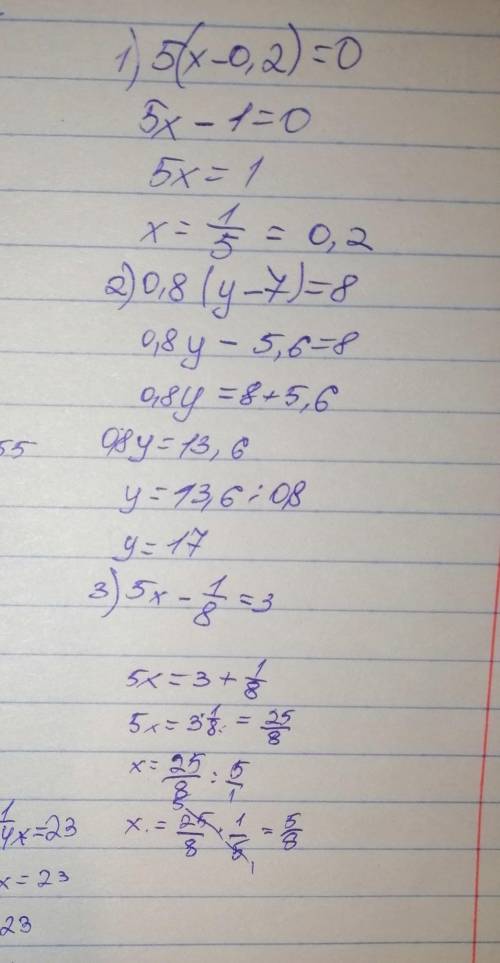 1) 5(x-0,2)=0
5x-1=0
5x=1
x=1/5=0,2
2) 0,8(y-7)=8
0,8y-5,6=8
0,8y=8+5,6
55
0,8y=13,6
y=13,6:0,8
y=17
3) 5x-1/8=3
5x=3+1/8
5x=3 1/8=25/8
x=25/8:5/1
1/4x=23
x.=25/8·1/5=5/8
x=23
23